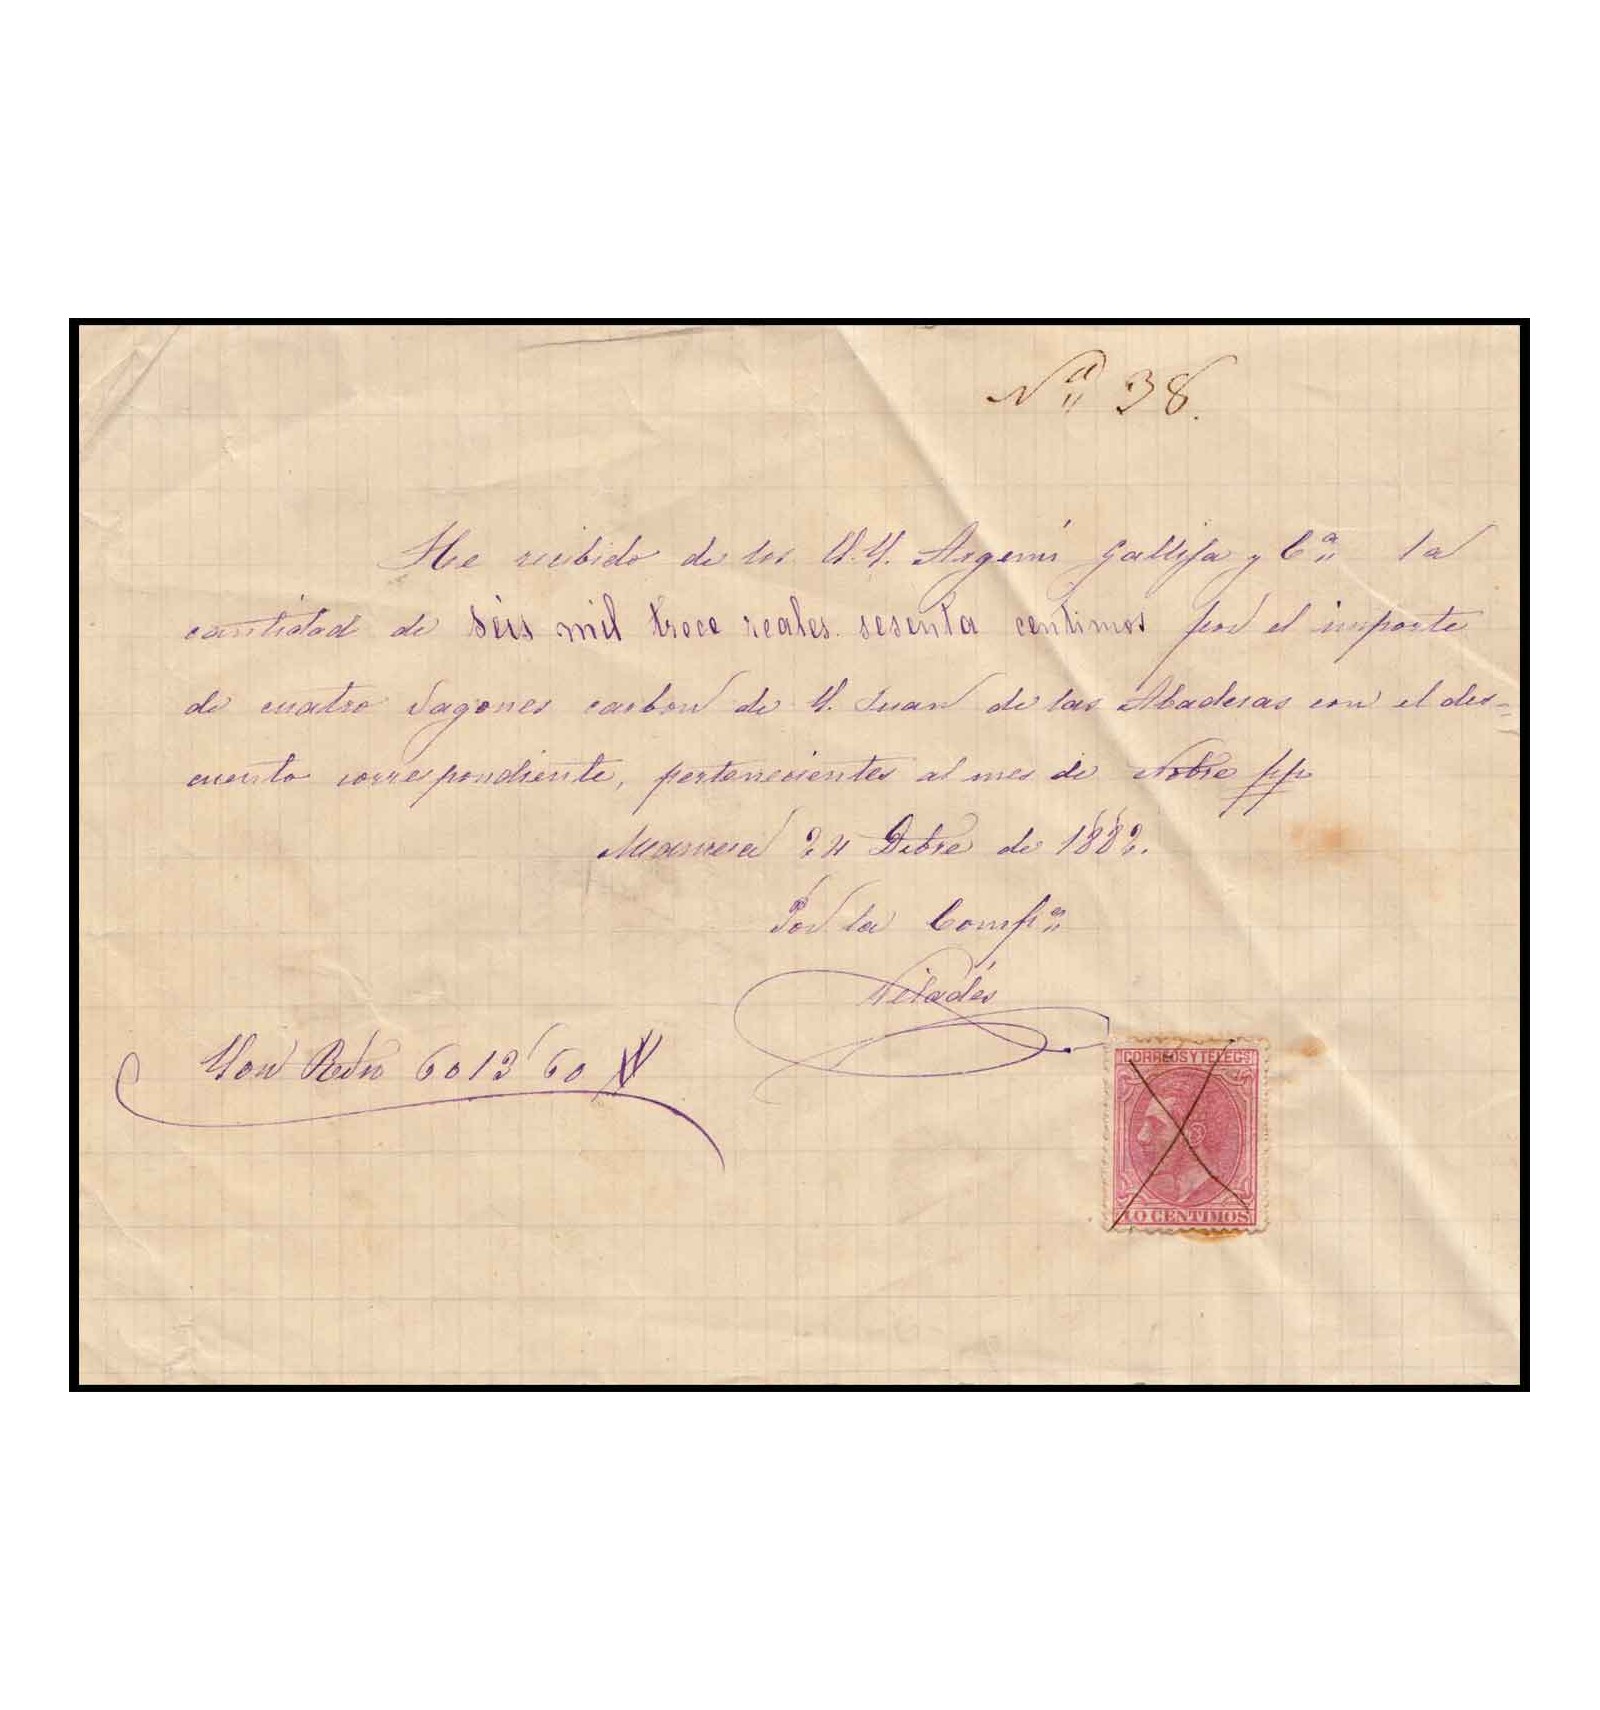 Nº 38.
He recibido de los S.S. Argemí Gallifa y Cª la
cantidad de seis mil trece reales sesenta centimos por el importe
de cuatro vagones carbon de S. Juan de las Abadesas con el des=
cuento correspondiente, pertenecientes al mes de Nobre pp
Manresa 24 Dbre de 1882.
Por la Compª
Viladés
Son Rvn 6013'60
CORREOS Y TELEGS
10 CENTIMOS